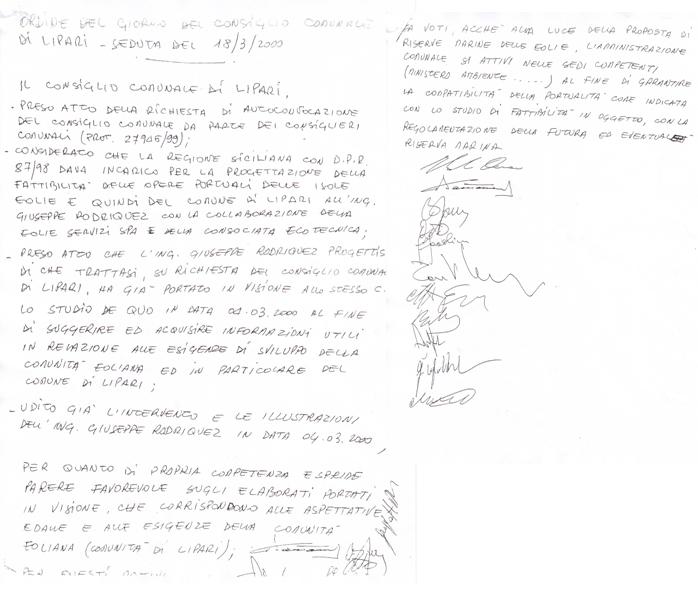 ORDINE DEL GIORNO DEL CONSIGLIO COMUNALE
DI LIPARI - SEDUTA DEL 18/3/2000
IL CONSIGLIO COMUNALE DI LIPARI,
- PRESO ATTO DELLA RICHIESTA DI AUTOCONVOCAZIONE
DEL CONSIGLIO COMUNALE DA PARTE DEI CONSIGLIERI
COMUNALI (PROT. 27945/99);
- CONSIDERATO CHE LA REGIONE SICILIANA CON D.P.R.
87/98 DAVA INCARICO PER LA PROGETTAZIONE DELLA
FATTIBILITÀ DELLE OPERE PORTUALI DELLE ISOLE
EOLIE E QUINDI DEL COMUNE DI LIPARI ALL'ING.
GIUSEPPE RODRIQUEZ CON LA COLLABORAZIONE DELLA
EOLIE SERVIZI SPA E DELLA CONSOCIATA ECOTECNICA;
- PRESO ATTO CHE L'ING. GIUSEPPE RODRIQUEZ PROGETTIS
DI CHE TRATTASI, SU RICHIESTA DEL CONSIGLIO COMUNA
DI LIPARI, HA GIA' PORTATO IN VISIONE ALLO STESSO C.
LO STUDIO DE QUO IN DATA 04.03.2000 AL FINE
DI SUGGERIRE ED ACQUISIRE INFORMAZIONI UTILI
IN RELAZIONE ALLE ESIGENZE DI SVILUPPO DELLA
COMUNITÀ EOLIANA ED IN PARTICOLARE DEL
COMUNE DI LIPARI;
- UDITO GIA' L'INTERVENTO E LE ILLUSTRAZIONI
DELL'ING. GIUSEPPE RODRIQUEZ IN DATA 04.03.2000,
PER QUANTO DI PROPRIA COMPETENZA ESPRIME
PARERE FAVOREVOLE SUGLI ELABORATI PORTATI
IN VISIONE, CHE CORRISPONDONO ALLE ASPETTATIVE
E ALLE ESIGENZE DELLA COMUNITÀ
EOLIANA (COMUNITÀ DI LIPARI);
PER QUESTI MOTIVI
FA VOTI, ACCHÈ ALLA LUCE DELLA PROPOSTA DI
RISERVE MARINE DELLE EOLIE, L'AMMINISTRAZIONE
COMUNALE SI ATTIVI NELLE SEDI COMPETENTI
(MINISTERO AMBIENTE .....) AL FINE DI GARANTIRE
LA COMPATIBILITÀ DELLA PORTUALITÀ COME INDICATA
CON LO STUDIO DI FATTIBILITÀ IN OGGETTO, CON LA
REGOLAMENTAZIONE DELLA FUTURA ED EVENTUALE
RISERVA MARINA.